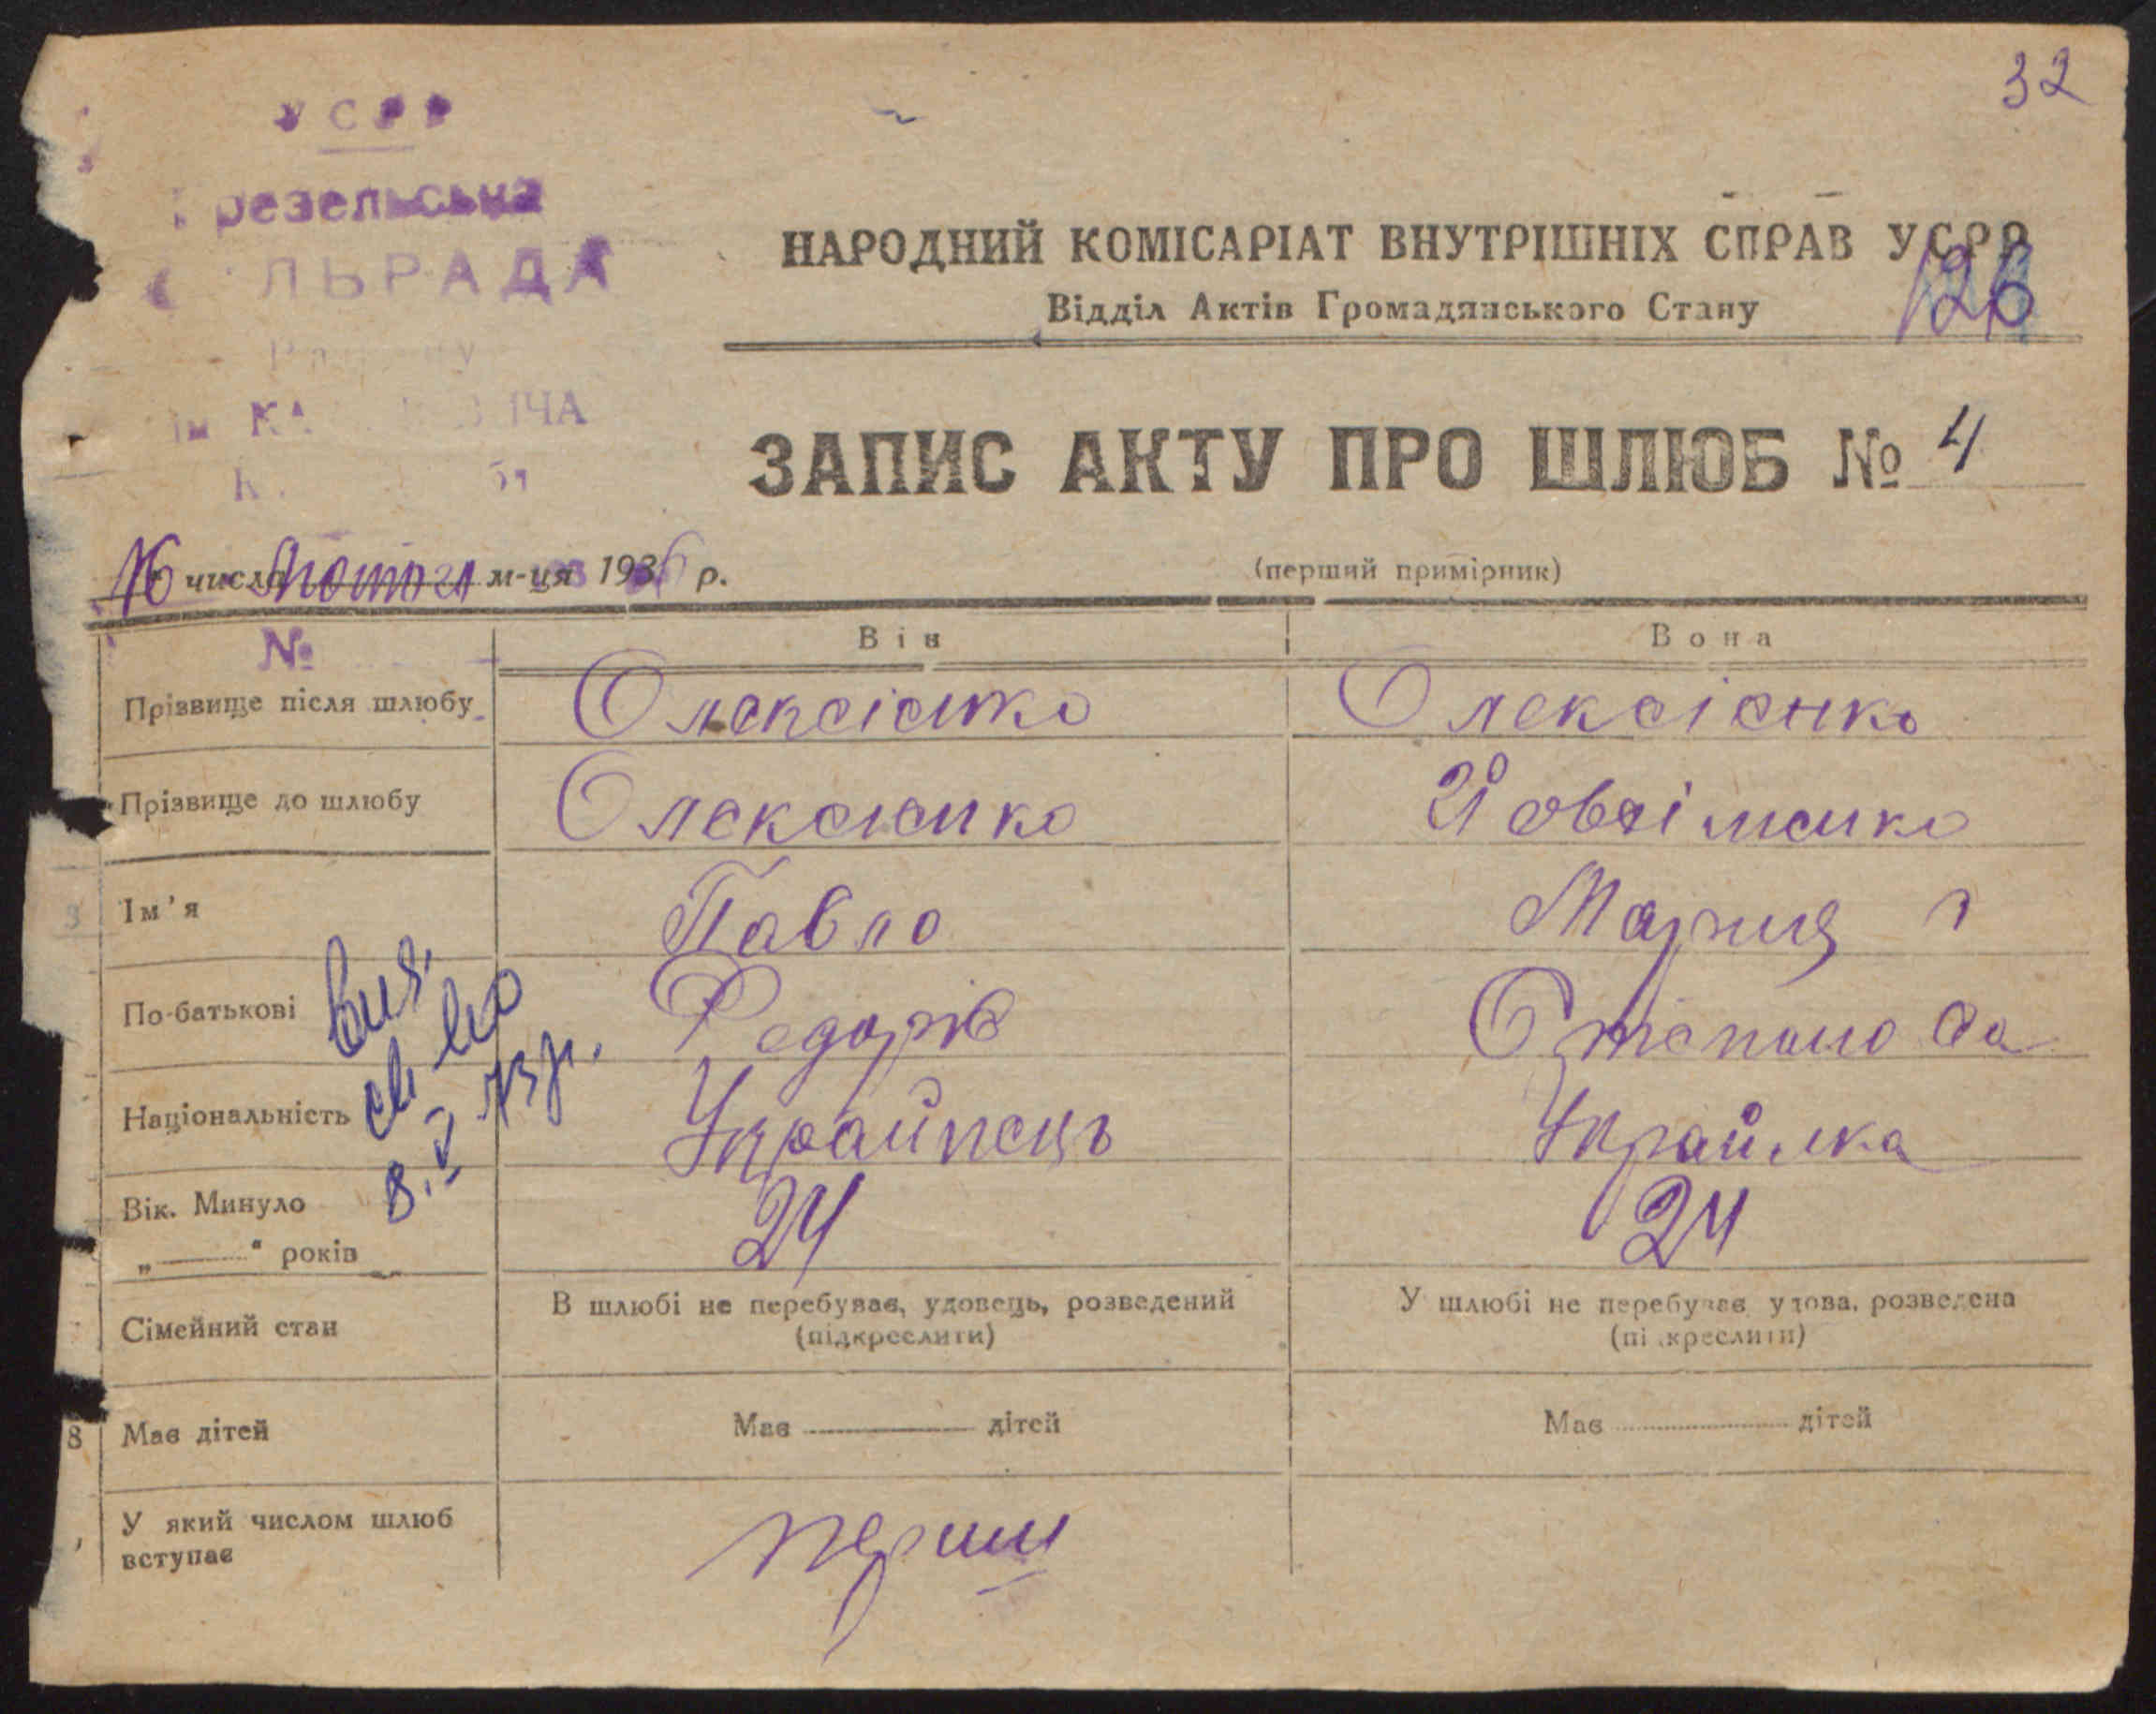 32
УСРР
резельська
ЛЬРАДА
НАРОДНИЙ КОМІСАРІАТ ВНУТРІШНІХ СПРАВ УСРР
126
Відділ Актів Громадянського Стану
ЗАПИС АКТУ ПРО ШЛЮБ № 4
16 числа Лютого м-ця 1936 р.
(перший примірник)
№
Він Вона
Прізвище після шлюбу Олексієнко Олексієнко
Прізвище до шлюбу Олексієнко
Ім'я Павло Мария
По-батькові Федорів Степанова
Національність Українець Українка
8. V 73р.
Вік. Минуло
„ “ років 24 24
Сімейний стан
В шлюбі не перебував, удовець, розведений
(підкреслити)
У шлюбі не перебував удова, розведена
(підкреслити)
8 Має дітей Має дітей Має дітей
У який числом шлюб
вступає перши